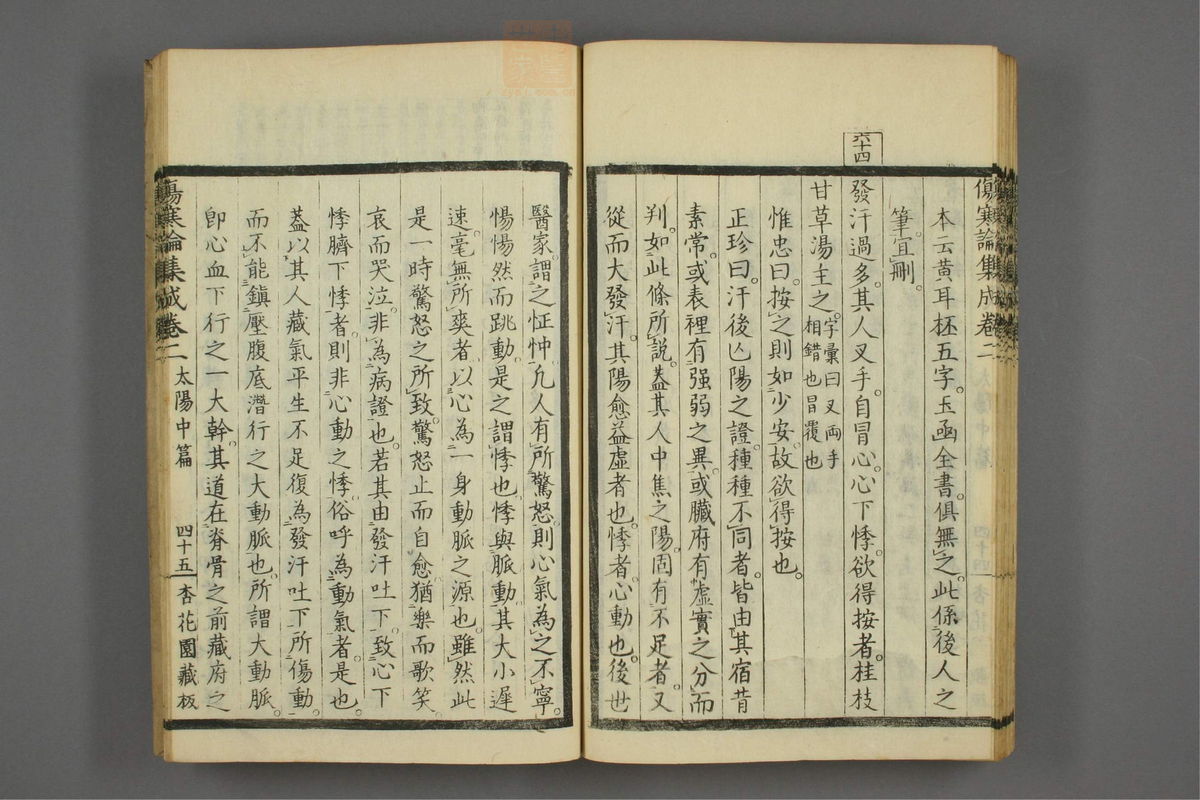 傷寒論集成卷二
本云黃耳杯五字。玉函全書。俱無之。此係後人之
筆。宜刪。
六十四
發汗過多。其人叉手。自冒心。心下悸。欲得按者。桂枝
甘草湯主之。字彙曰叉両手相錯也冒覆也
惟忠曰。按之則如少安。故欲得按也。
正珍曰。汗後亾陽之證。種種不同者。皆由其宿昔
素常。或表裡有強弱之異。或臟府有虛實之分而
判。如此條所說。蓋其人中焦之陽。固有不足者。又
從而大發汗。其陽愈益虛者也。悸者。心動也。後世
醫家謂之怔忡。凡人有所驚怒。則心氣為之不寧。
惕惕然而跳動。是之謂悸也。悸與脈動。其大小遲
速。毫無所爽者。以心為一身動脈之源也。雖然此
是一時驚怒之所致。驚怒止而自愈。猶樂而歌笑。
哀而哭泣。非為病證也。若其由發汗吐下。致心下
悸臍下悸者。則非心動之悸。俗呼為動氣者是也。
蓋以其人藏氣平生不足。復為發汗吐下所傷動。
而不能鎮壓腹底潛行之大動脈也。所謂大動脈。
即心血下行之一大幹。其道在脊骨之前藏府之
傷寒論集成卷二 太陽中篇 四十五 杏花園藏板